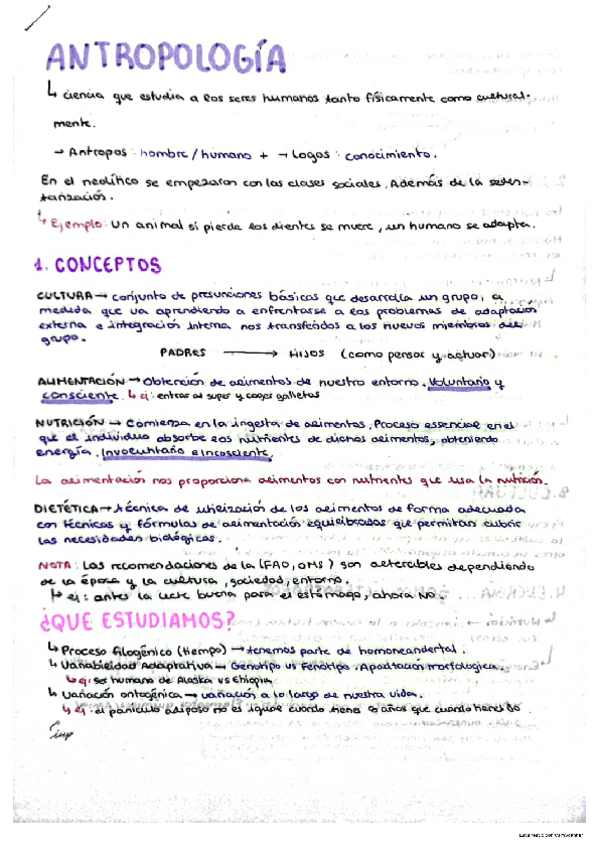 ANTROPOLOGÍA
↳ ciencia que estudia a los seres humanos tanto físicamente como cultural-
mente.
→ Antropos : hombre / humano + → Logos : conocimiento.
En el neolítico se empezaron con las clases sociales. Además de la seden-
tarización.
↳ Ejemplo: Un animal si pierde los dientes se muere, un humano se adapta.
1. CONCEPTOS
CULTURA → conjunto de presunciones básicas que desarrolla un grupo, a
medida que va aprendiendo a enfrentarse a los problemas de adaptación
externa e integración interna nos transferidos a los nuevos miembros del
grupo.
PADRES → HIJOS (como pensar y actuar)
ALIMENTACIÓN → Obtención de alimentos de nuestro entorno. Voluntario y
consciente. ↳ ej: entras al super y coges galletas
NUTRICIÓN → Comienza en la ingesta de alimentos. Proceso esencial en el
que el individuo absorbe los nutrientes de dichos alimentos, obteniendo
energía. Involuntario e incosciente.
La alimentación nos proporciona alimentos con nutrientes que usa la nutrición.
DIETÉTICA → técnica de utilización de los alimentos de forma adecuada
con técnicas y fórmulas de alimentación equilibradas que permitan cubrir
las necesidades biológicas.
NOTA: Las recomendaciones de la (FAO, OMS) son alterables dependiendo
de la época y la cultura, sociedad, entorno.
↳ ej: antes la leche buena para el estómago, ahora NO.
¿QUE ESTUDIAMOS?
↳ Proceso filogénico (tiempo) → tenemos parte de homoneandertal.
↳ Variabilidad Adaptativa → Genotipo vs Fenotipo. Apadtación morfologica.
↳ ej: ser humano de Alaska vs Ethiopia
↳ Variación ontogénica → variación a lo largo de nuestra vida.
↳ ej: el panículo adiposo no es igual cuando tienes años que cuando tienes